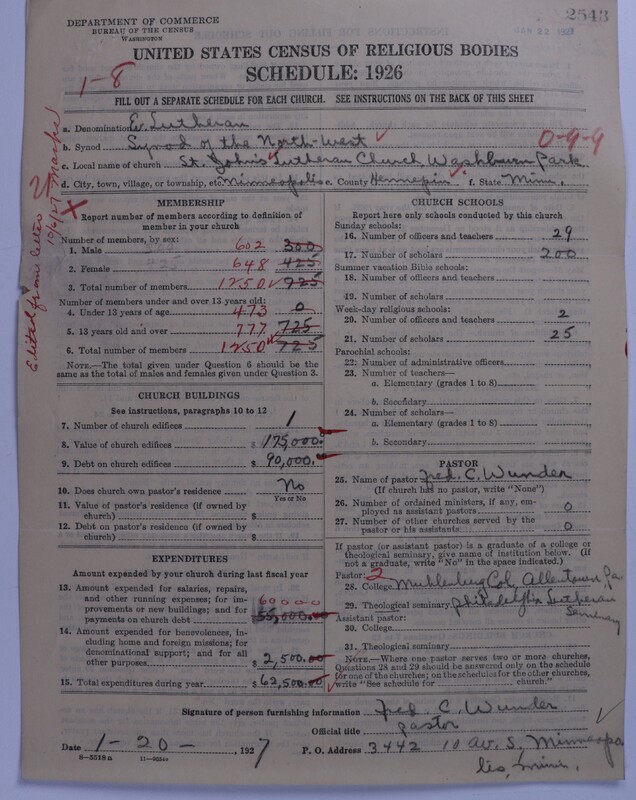 DEPARTMENT OF COMMERCE
BUREAU OF THE CENSUS
WASHINGTON
2543
JAN 22 1927
UNITED STATES CENSUS OF RELIGIOUS BODIES
SCHEDULE: 1926
1-8
FILL OUT A SEPARATE SCHEDULE FOR EACH CHURCH. SEE INSTRUCTIONS ON THE BACK OF THIS SHEET
a. Denomination Ev. Lutheran
b. Synod Synod of the North-West
0-9-9
c. Local name of church St. John's Lutheran Church Washburn Park
d. City, town, village, or township, etc. Minneapolis e. County Hennepin f. State Minn.
MEMBERSHIP
Report number of members according to definition of member in your church
Number of members, by sex:
1. Male 602 300
2. Female 648 425
3. Total number of members 1250 725
Number of members under and over 13 years old:
4. Under 13 years of age 473 0
5. 13 years old and over 777 725
6. Total number of members 1250 725
NOTE.—The total given under Question 6 should be the same as the total of males and females given under Question 3.
CHURCH BUILDINGS
See instructions, paragraphs 10 to 12
7. Number of church edifices 1
8. Value of church edifices $ 175,000.
9. Debt on church edifices $ 90,000.
10. Does church own pastor's residence No
Yes or No
11. Value of pastor's residence (if owned by church) $
12. Debt on pastor's residence (if owned by church) $
EXPENDITURES
Amount expended by your church during last fiscal year
13. Amount expended for salaries, repairs, and other running expenses; for improvements or new buildings; and for payments on church debt 60000 $ 55,000.00
14. Amount expended for benevolences, including home and foreign missions; for denominational support; and for all other purposes $ 2,500.00
15. Total expenditures during year $ 62,500.00
CHURCH SCHOOLS
Report here only schools conducted by this church
Sunday schools:
16. Number of officers and teachers 29
17. Number of scholars 200
Summer vacation Bible schools:
18. Number of officers and teachers
19. Number of scholars
Week-day religious schools:
20. Number of officers and teachers 2
21. Number of scholars 25
Parochial schools:
22. Number of administrative officers
23. Number of teachers—
a. Elementary (grades 1 to 8)
b. Secondary
24. Number of scholars—
a. Elementary (grades 1 to 8)
b. Secondary
PASTOR
25. Name of pastor Fred. C. Wunder
(If church has no pastor, write "None")
26. Number of ordained ministers, if any, employed as assistant pastors 0
27. Number of other churches served by the pastor or his assistants 0
If pastor (or assistant pastor) is a graduate of a college or theological seminary, give name of institution below. (If not a graduate, write "No" in the space indicated.)
Pastor: 2
28. College Muhlenberg Col. Allentown, Pa.
29. Theological seminary Philadelphia Lutheran Seminary
Assistant pastor:
30. College
31. Theological seminary
NOTE.—Where one pastor serves two or more churches, Questions 28 and 29 should be answered only on the schedule for one of the churches; on the schedules for the other churches, write "See schedule for ........ church."
Signature of person furnishing information Fred C. Wunder
Official title pastor
Date 1-20-, 1927
P. O. Address 3442 10 Av. S, Minneapolis, Minn.
8-5518a 11-9024